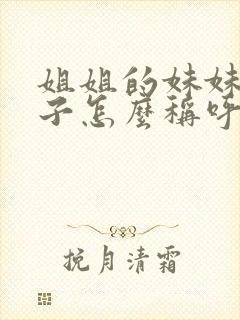 姐姐的妹妹
子怎麼稱呼
挽月清霜